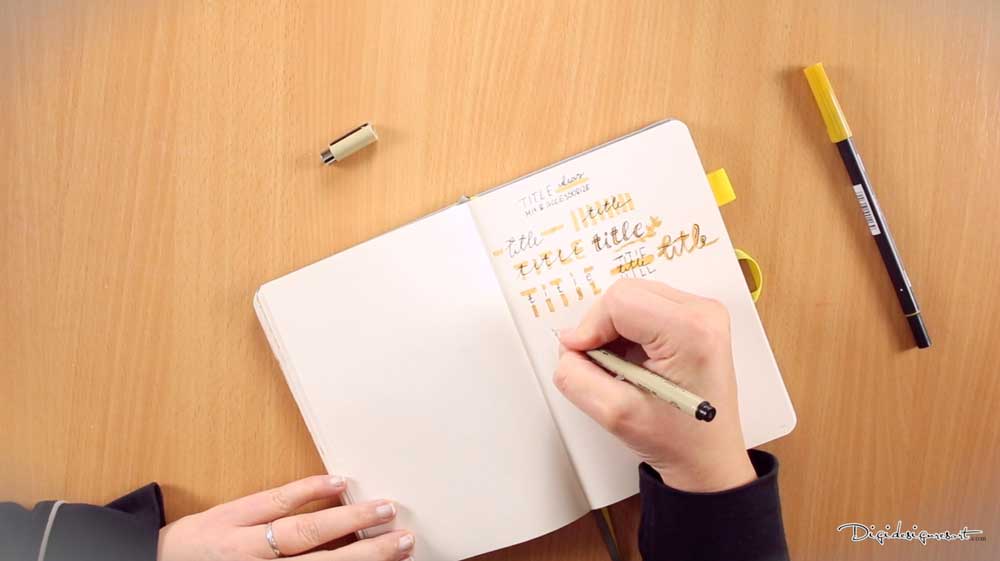 TITLE ideas
MIX & ACCESSORIZE
title title
title title title
TITLE title
Digidesignresort.com